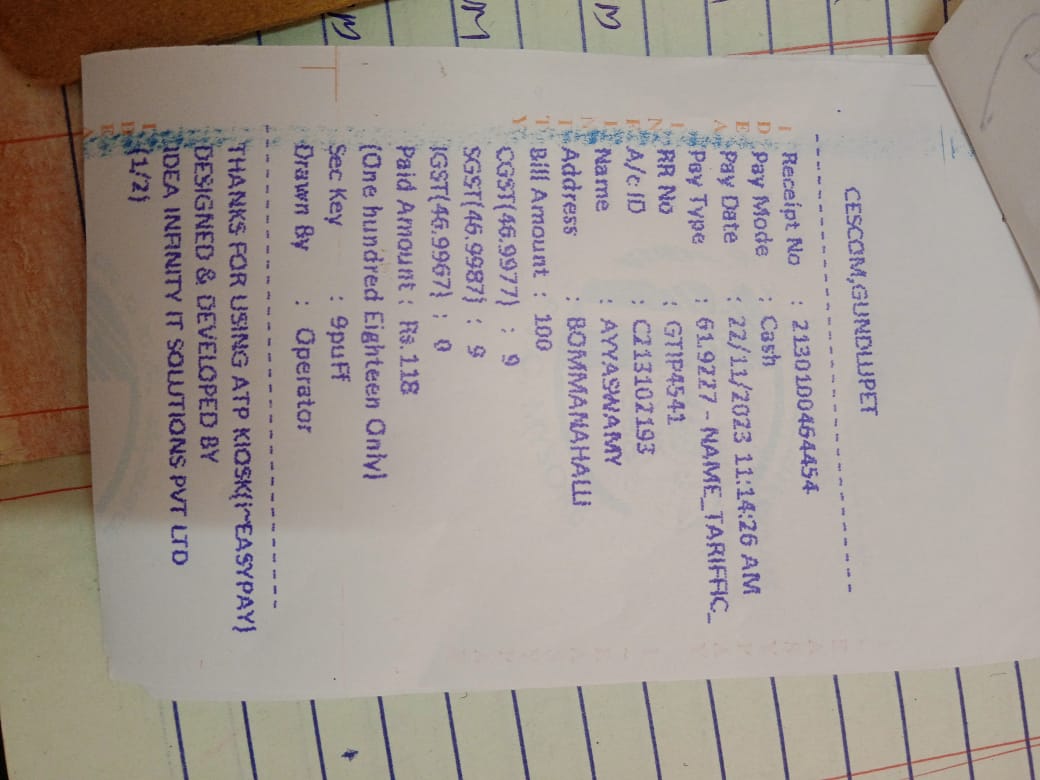 CESCOM,GUNDLUPET
--------------------------------
Receipt No : 2130100464454
Pay Mode : Cash
Pay Date : 22/11/2023 11:14:26 AM
Pay Type : 61.9277 - NAME_TARIFFIC_
RR No : GTIP4541
A/c ID : C213102193
Name : AYYASWAMY
Address : BOMMANAHALLi
Bill Amount : 100
CGST(46.9977) : 9
SGST(46.9987) : 9
IGST(46.9967) : 0
Paid Amount : Rs.118
(One hundred Eighteen Only)
Sec Key : 9puff
Drawn By : Operator
--------------------------------
THANKS FOR USING ATP KIOSK(i~EASYPAY)
DESIGNED & DEVELOPED BY
IDEA INFINITY IT SOLUTIONS PVT LTD
(1/2)